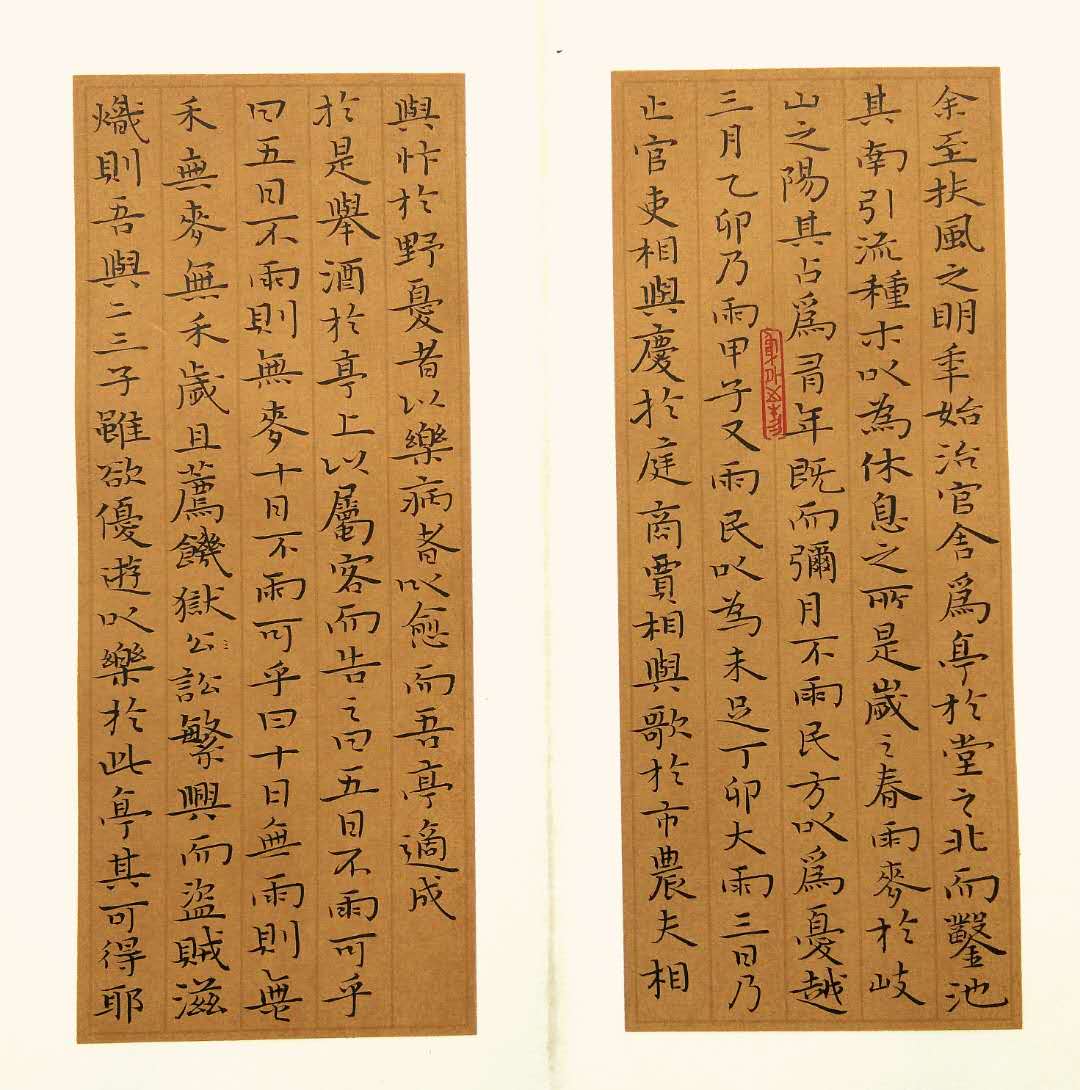 余至扶風之明年始治官舍爲亭於堂之北而鑿池
其南引流種木以為休息之所是歲之春雨麥於岐
山之陽其占爲有年既而彌月不雨民方以爲憂越
三月乙卯乃雨甲子又雨民以為未足丁卯大雨三日乃
止官吏相與慶於庭商賈相與歌於市農夫相
與忭於野憂者以樂病者以愈而吾亭適成
於是舉酒於亭上以屬客而告之曰五日不雨可乎
曰五日不雨則無麥十日不雨可乎曰十日無雨則無
禾無麥無禾歲且薦饑獄公訟繁興而盜賊滋
熾則吾與二三子雖欲優遊以樂於此亭其可得耶